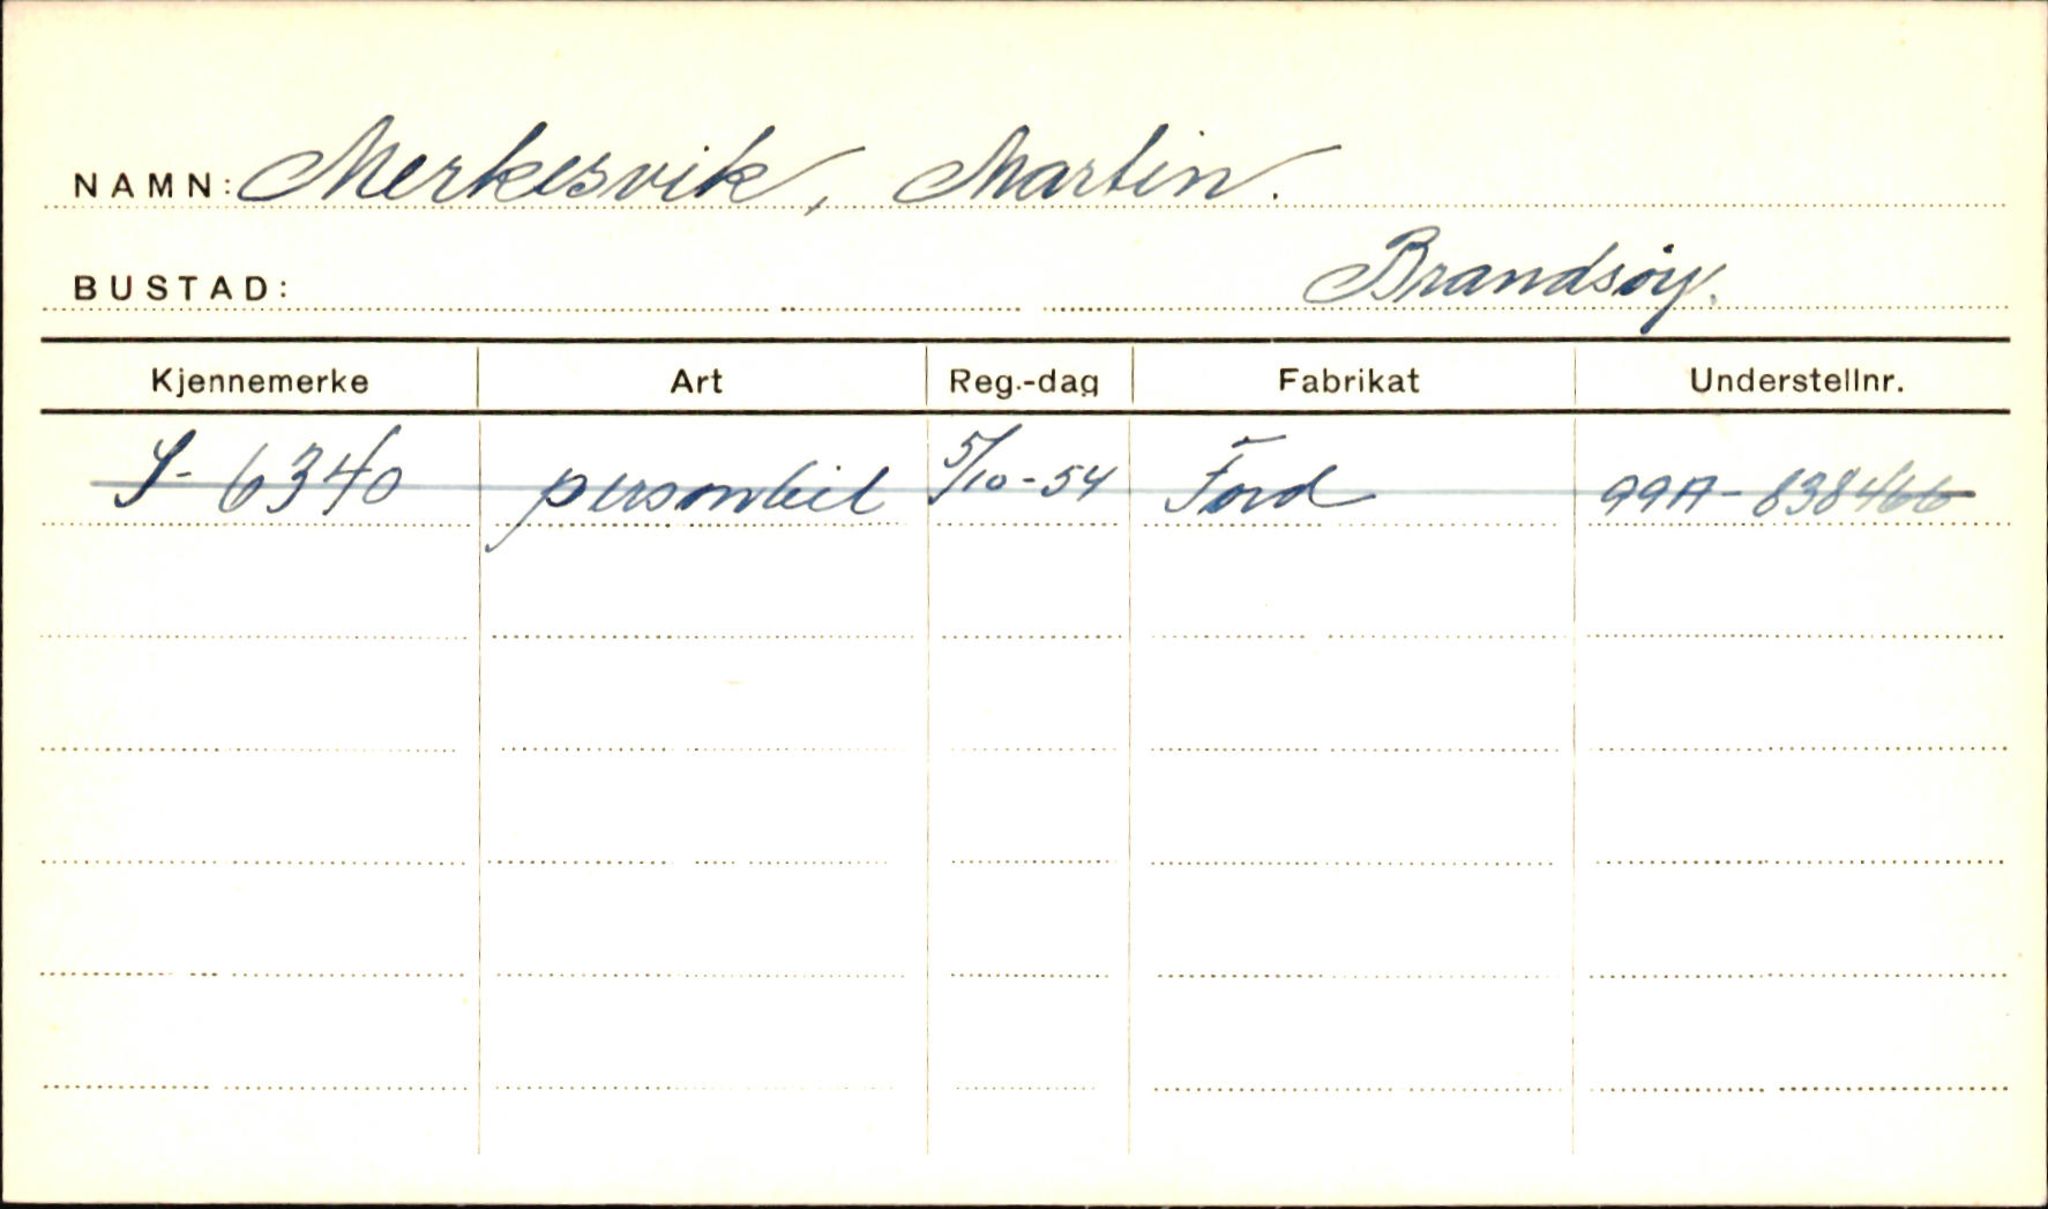 NAMN: Merkesvik, Martin.
BUSTAD: Brandsøy.
Kjennemerke Art Reg.-dag Fabrikat Understellnr.
S-6340 personbil 5/10-54 Ford 99A-838466